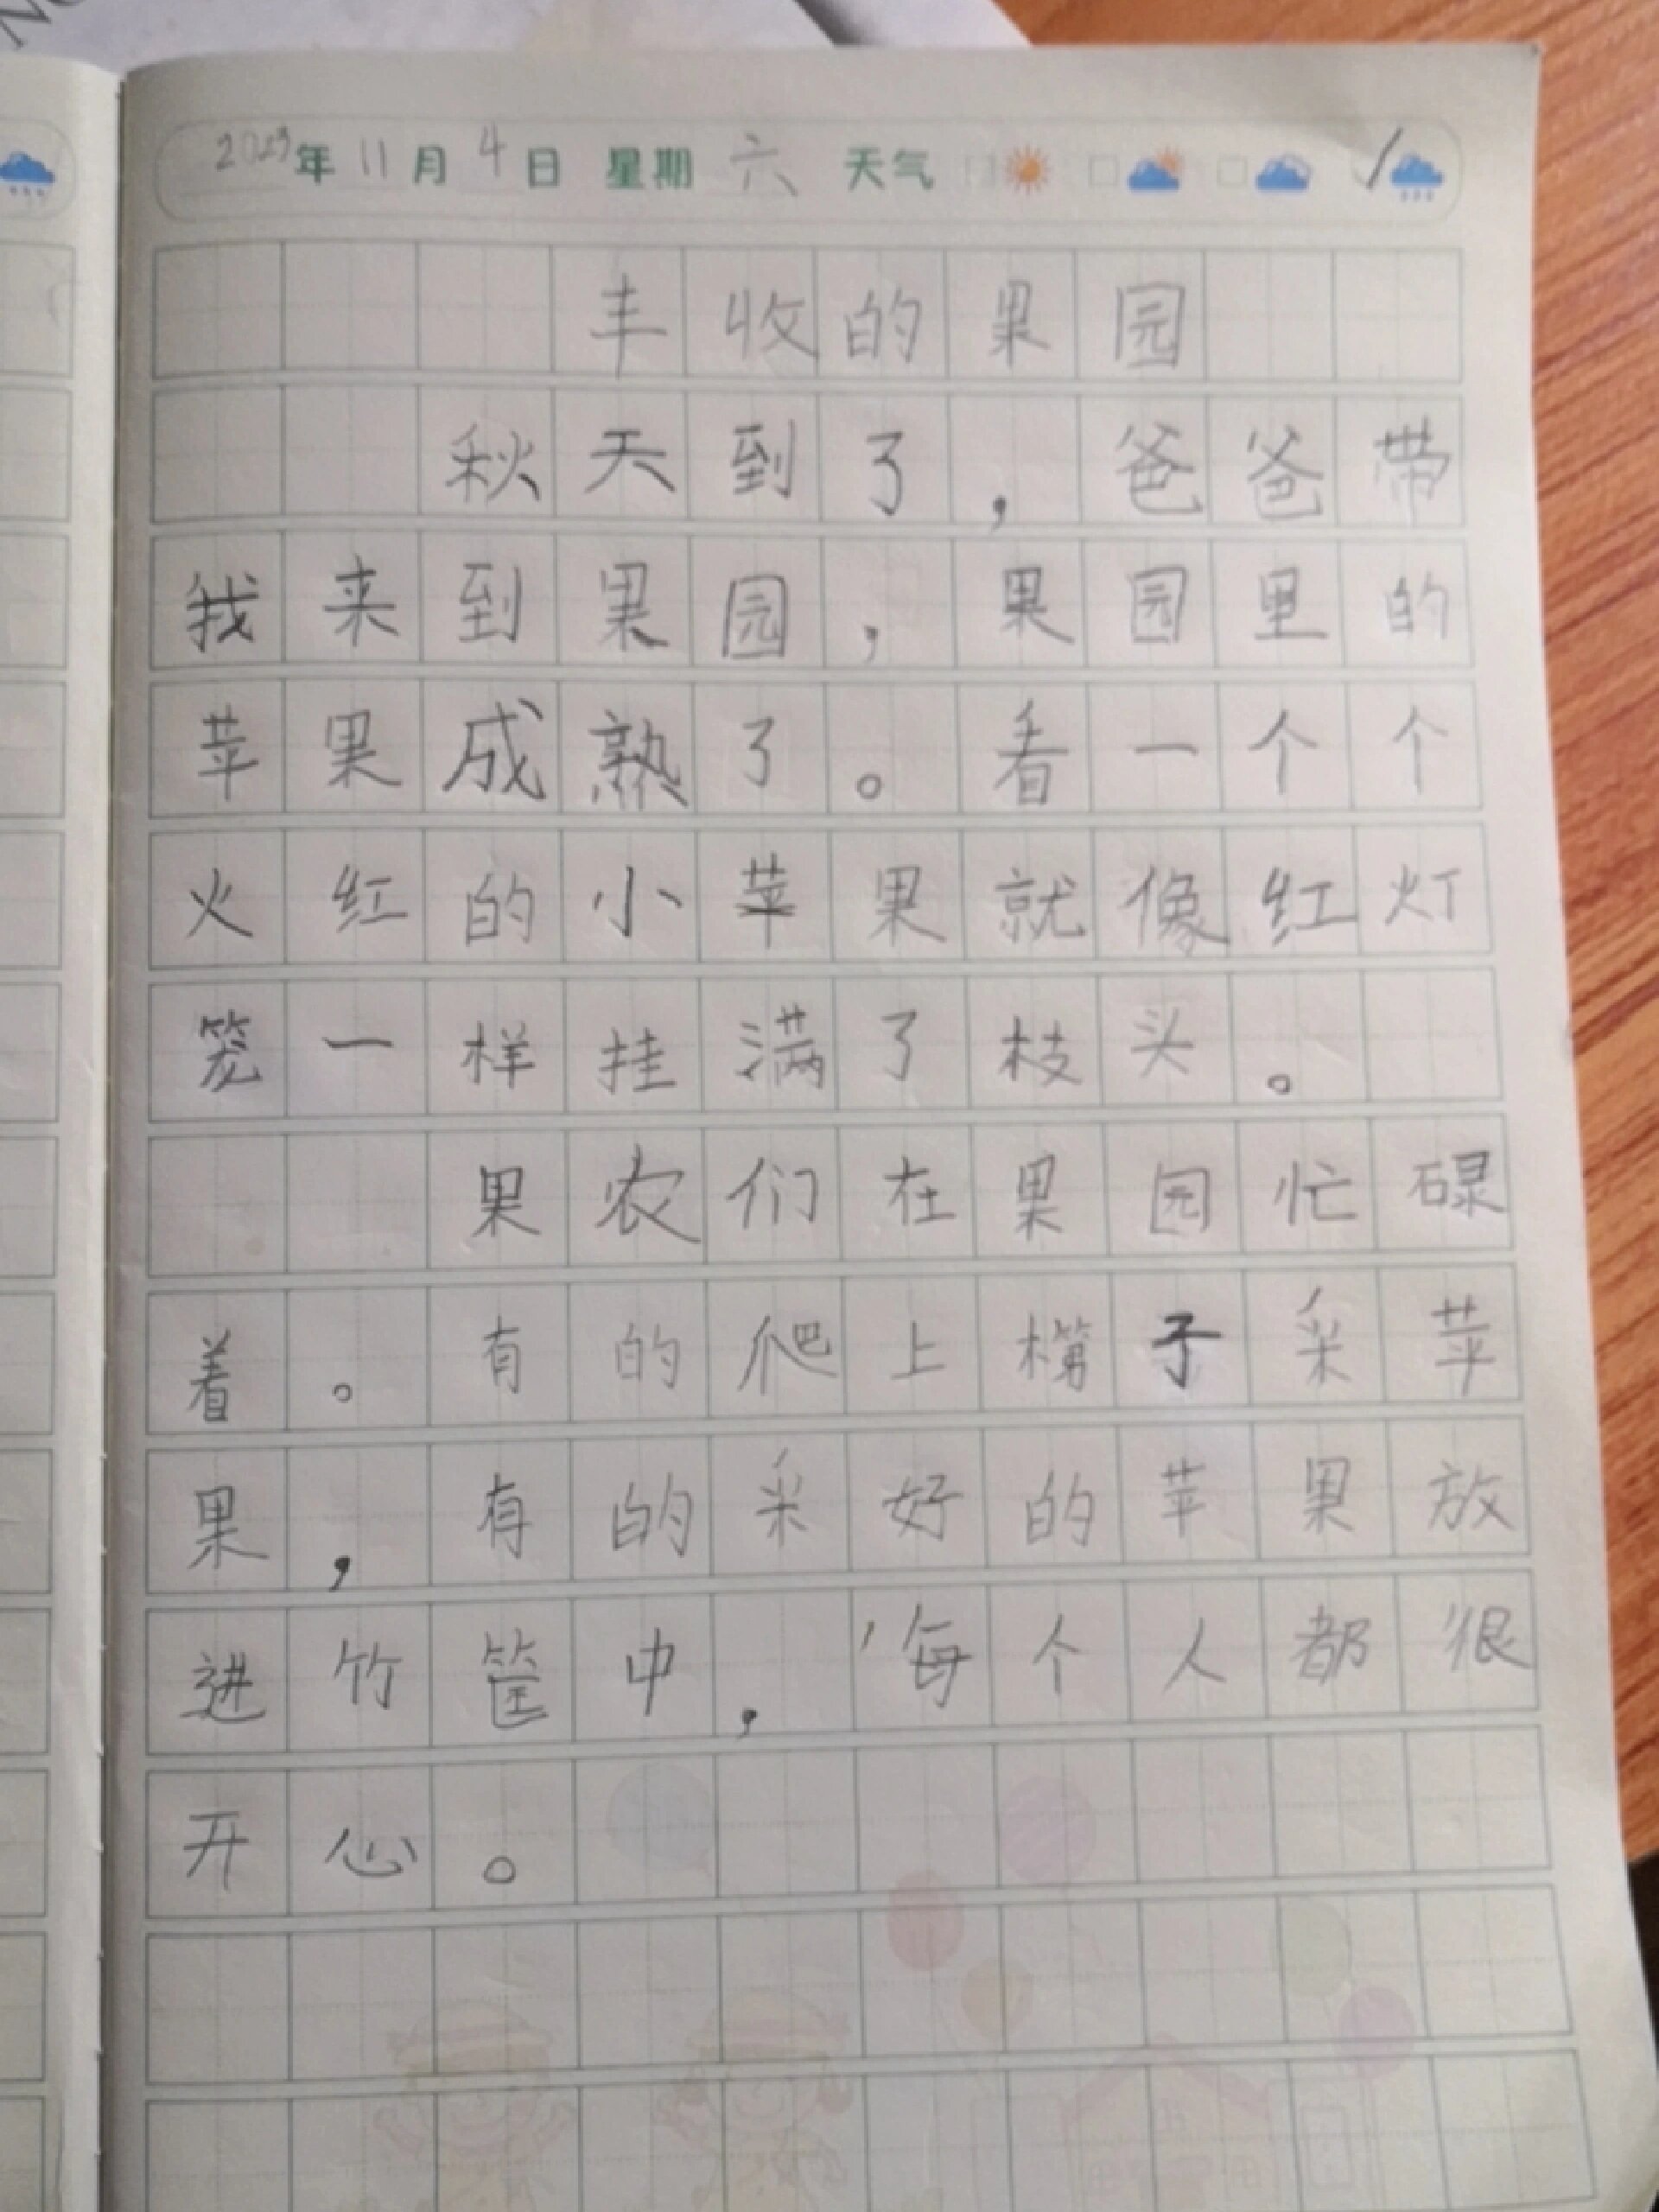 2023年11月4日 星期六 天气
丰收的果园
秋天到了，爸爸带
我来到果园，果园里的
苹果成熟了。看一个个
火红的小苹果就像红灯
笼一样挂满了枝头。
果农们在果园忙碌
着。有的爬上梯子采苹
果，有的采好的苹果放
进竹筐中，每个人都很
开心。